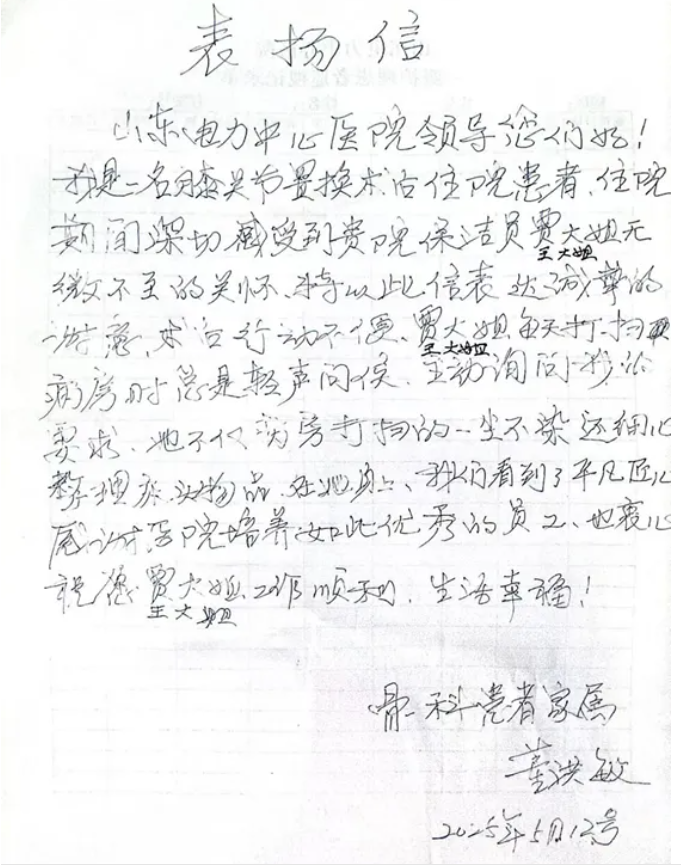 表扬信
山东电力中心医院领导您们好！
我是一名膝关节置换术后住院患者、住院
期间深切感受到贵院保洁员贾大姐无
王大姐
微不至的关怀、特以此信表达诚挚的
谢意、术后行动不便、贾大姐每天打扫
王大姐
病房时总是轻声问候、主动询问我的
要求、她不仅病房打扫的一尘不染还细心
整理床头物品、在她身上、我们看到了平凡匠心
感谢医院培养如此优秀的员工、也衷心
祝愿贾大姐工作顺利、生活幸福！
王大姐
骨科患者家属
董洪敏
2025年5月12号